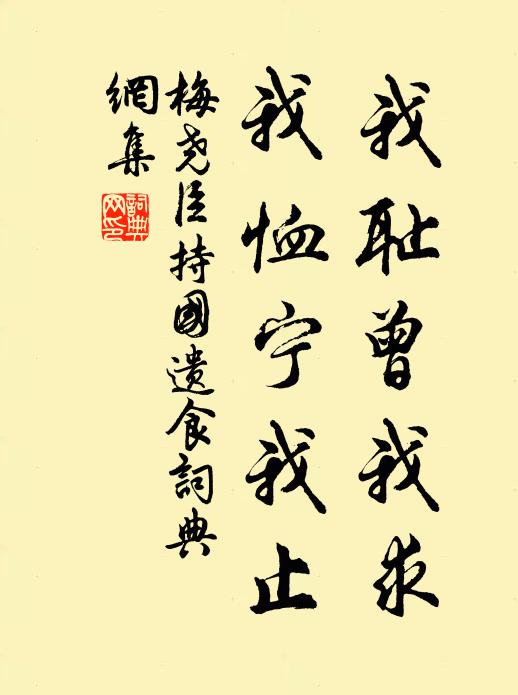 我耻曾我求
我恤宁我止
梅尧臣持國遗食詞典
網集
詞典网印